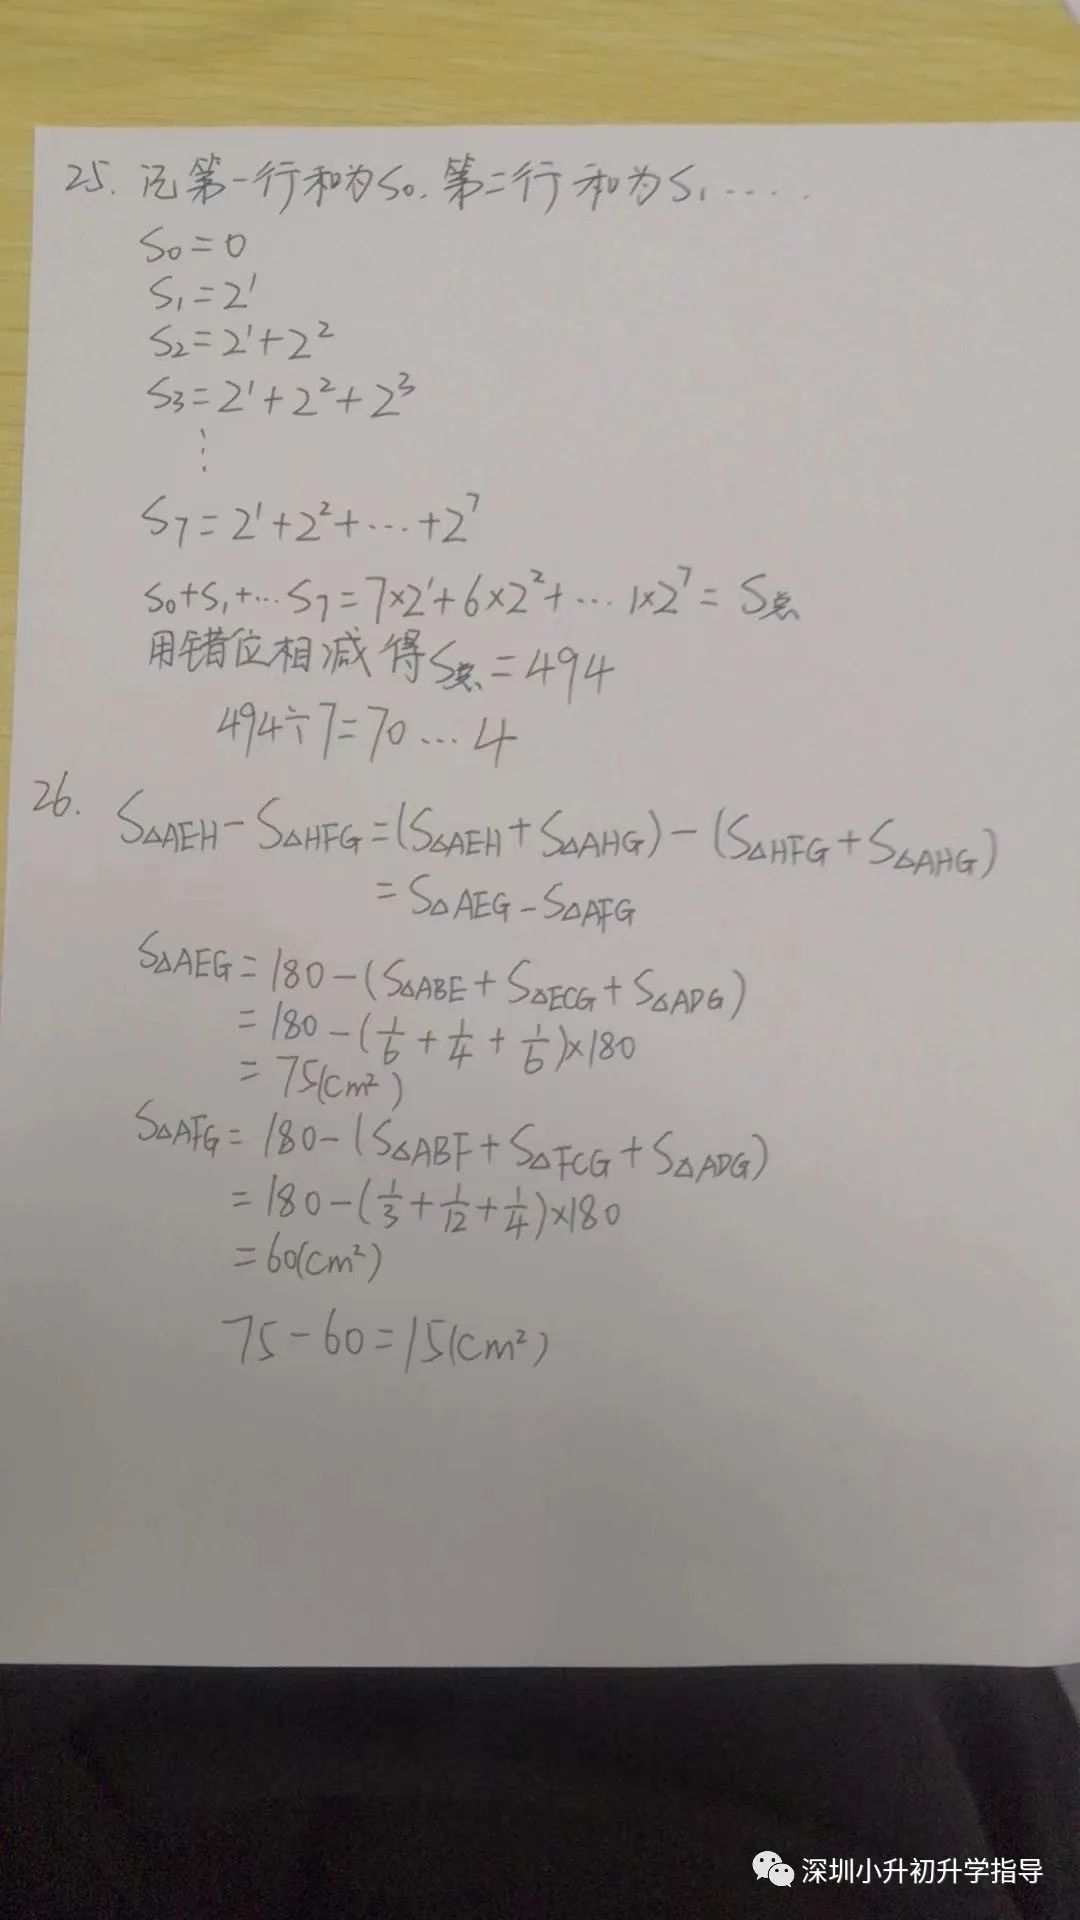 25. 记第一行和为S₀. 第二行和为S₁ ......
S₀=0
S₁=2¹
S₂=2¹+2²
S₃=2¹+2²+2³
⋮
S₇=2¹+2²+...+2⁷
S₀+S₁+...S₇=7×2¹+6×2²+...1×2⁷=S总
用错位相减得S总=494
494÷7=70...4
26. S△AEH-S△HFG=(S△AEH+S△AHG)-(S△HFG+S△AHG)
=S△AEG-S△AFG
S△AEG=180-(S△ABE+S△ECG+S△ADG)
=180-(1/6+1/4+1/6)×180
=75(cm²)
S△AFG=180-(S△ABF+S△FCG+S△ADG)
=180-(1/3+1/12+1/4)×180
=60(cm²)
75-60=15(cm²)
深圳小升初升学指导